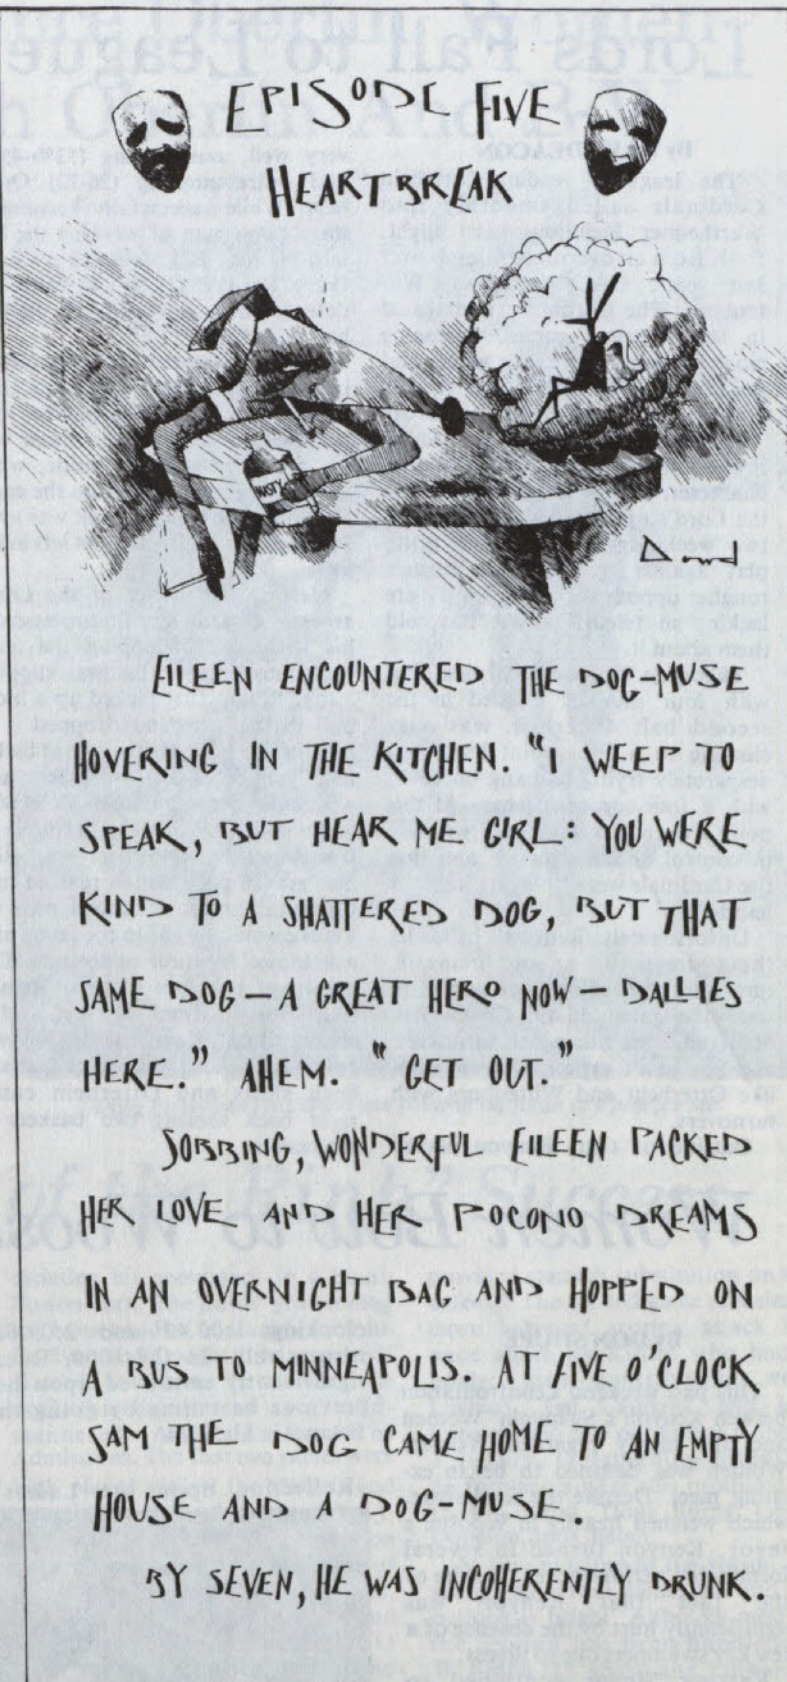 EPISODE FIVE
HEARTBREAK
EILEEN ENCOUNTERED THE DOG-MUSE
HOVERING IN THE KITCHEN. "I WEEP TO
SPEAK, BUT HEAR ME GIRL: YOU WERE
KIND TO A SHATTERED DOG, BUT THAT
SAME DOG — A GREAT HERO NOW — DALLIES
HERE." AHEM. "GET OUT."
SOBBING, WONDERFUL EILEEN PACKED
HER LOVE AND HER POCONO DREAMS
IN AN OVERNIGHT BAG AND HOPPED ON
A BUS TO MINNEAPOLIS. AT FIVE O'CLOCK
SAM THE DOG CAME HOME TO AN EMPTY
HOUSE AND A DOG-MUSE.
BY SEVEN, HE WAS INCOHERENTLY DRUNK.